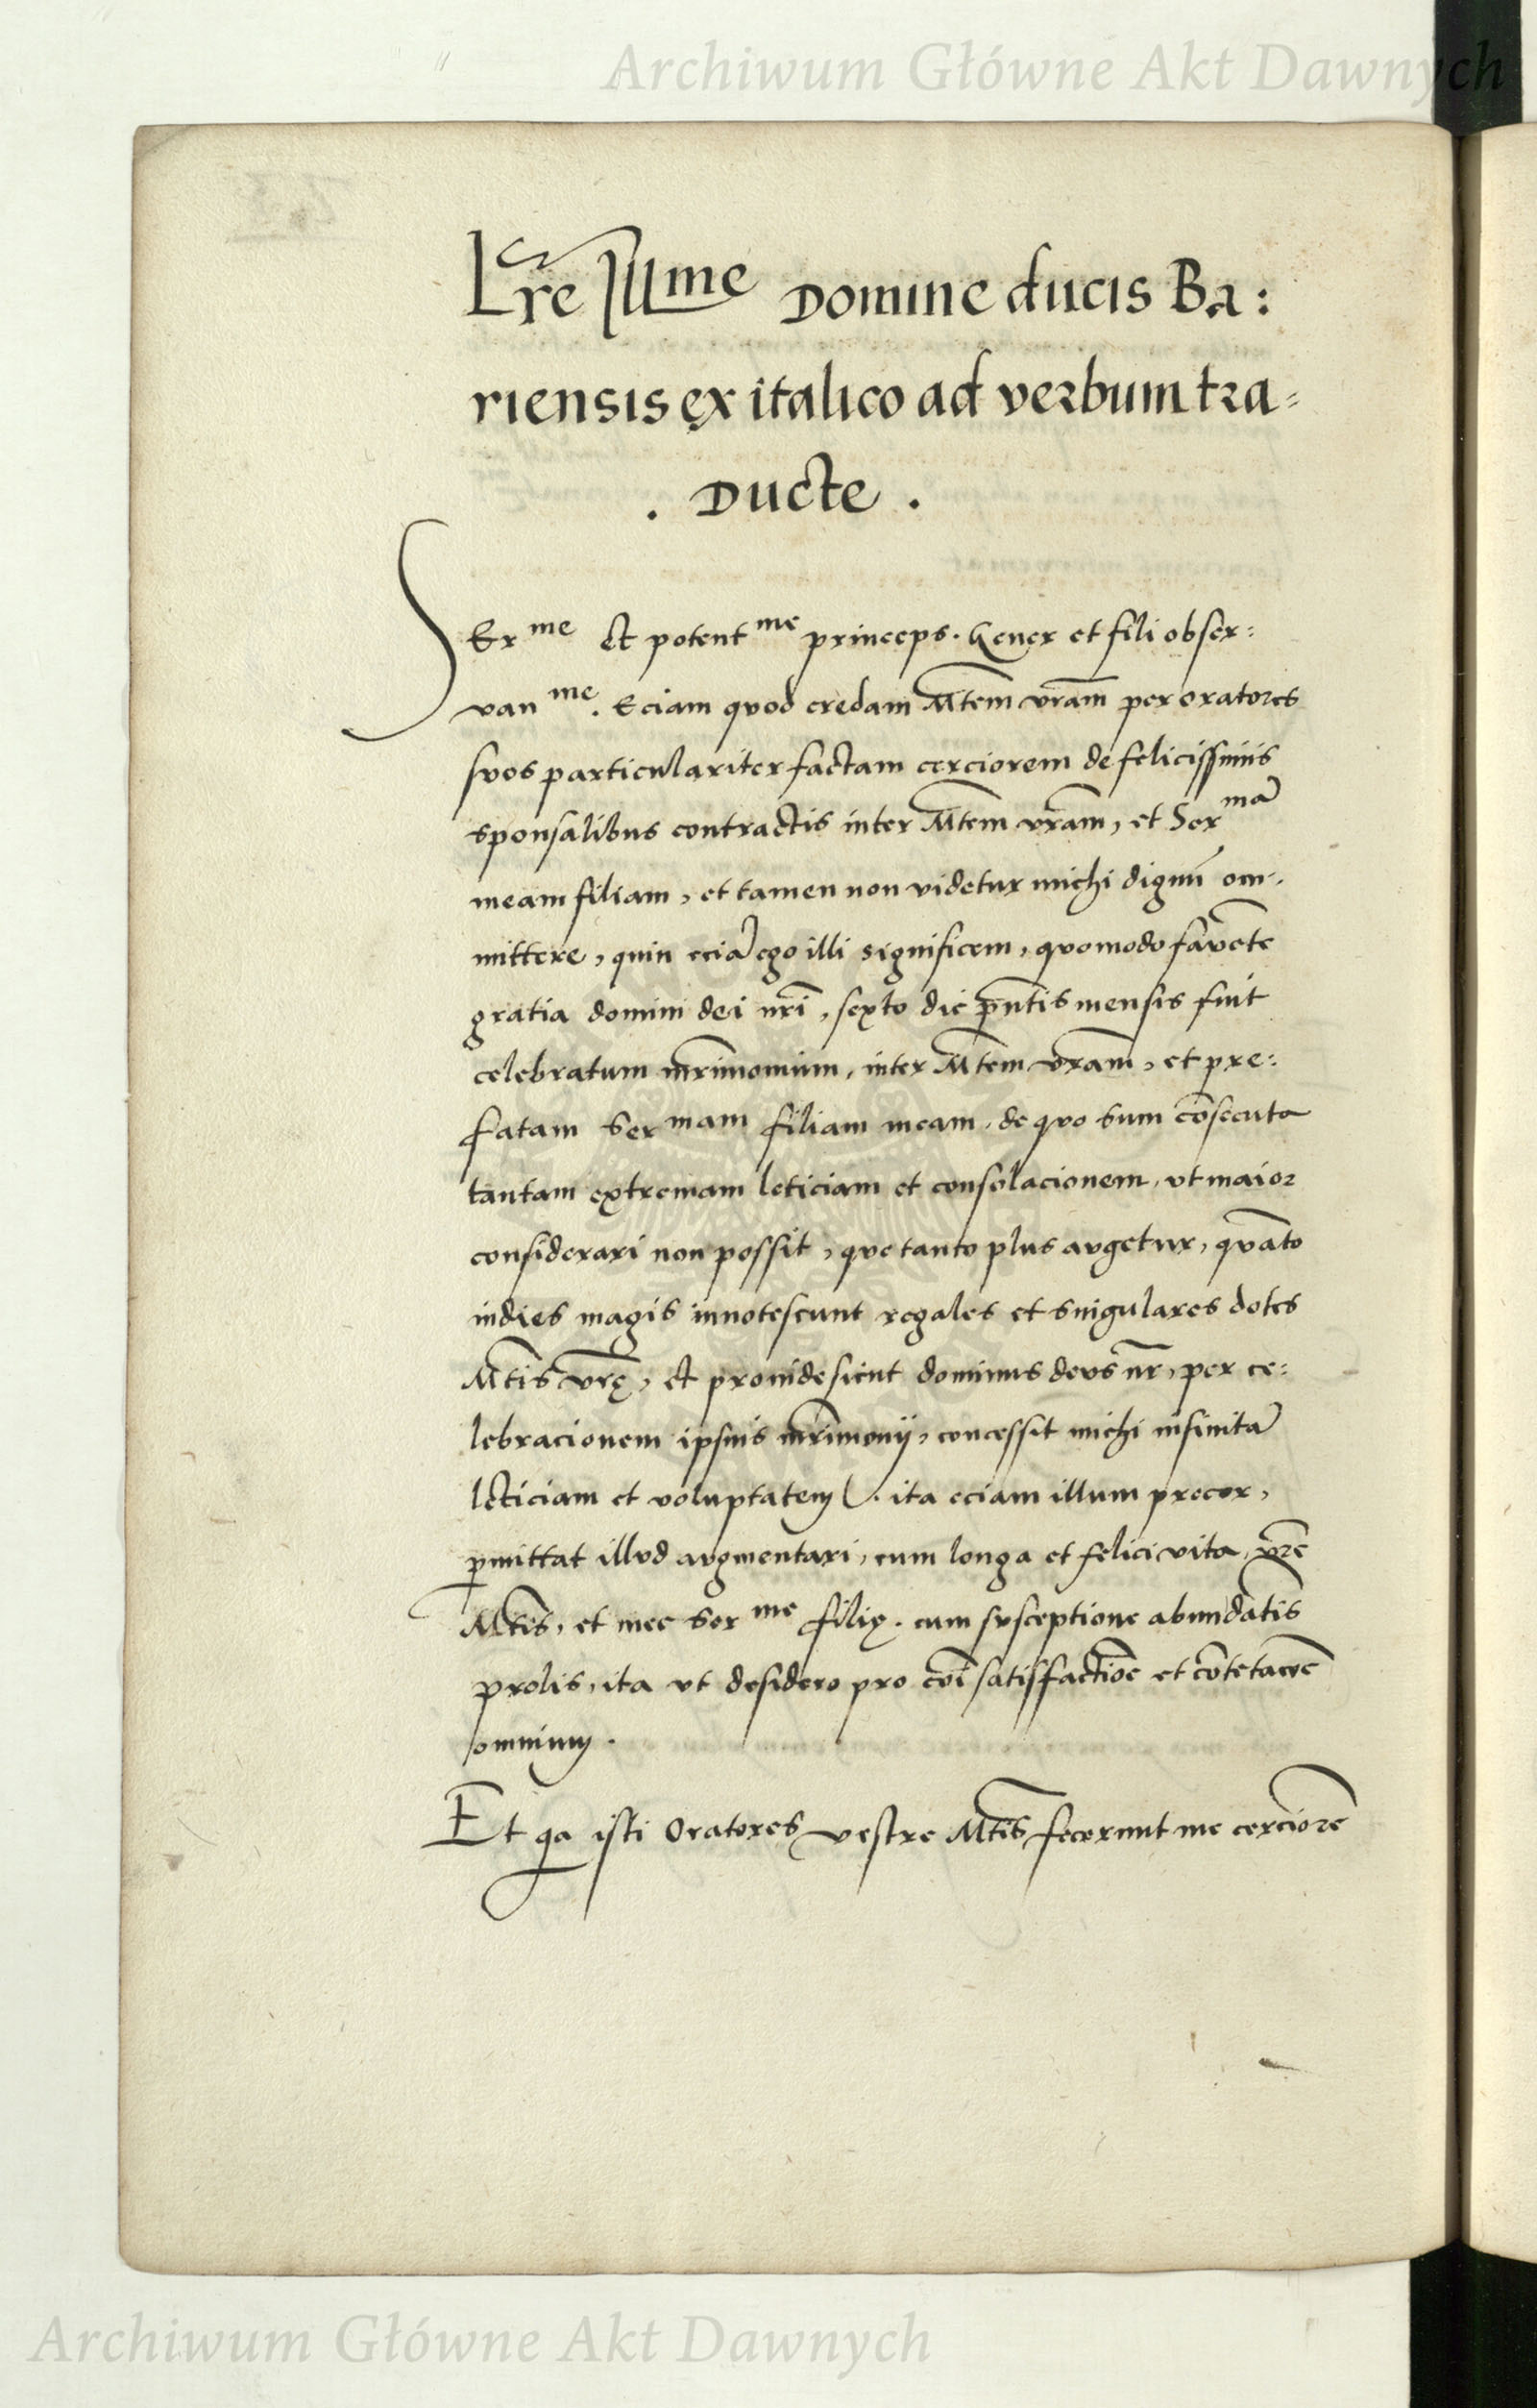 Archiwum Główne Akt Dawnych
Lr̃e Illme Domine ducis Ba:
riensis ex italico ad verbum tra=
. Ducte .
SEr me Et potent me princeps. Gener et fili obser:
van me. Eciam quod credam Mtem vrãm per oratores
suos particulariter factam cerciorem de felicissimis
sponsalibus contractis inter Mtem vrãm, et Ser mã
meam filiam, et tamen non videtur michi dignũ om-
mittere, quin eciã ego illi significem, quomodo favẽte
gratia domini dei nrĩ, sexto die pñtis mensis fuit
celebratum mrĩmonium, inter Mtem vrãm, et pre:
fatam Ser mam filiam meam, de quo sum cõsecuta
tantam extremam leticiam et consolacionem, vt maior
considerari non possit, que tanto plus augetur, quãto
indies magis innotescunt regales et singulares dotes
Mtis vrẽ, Et proinde sicut dominus deus nr̃, per ce:
lebracionem ipsius mrĩmonij, concessit michi infinitã
leticiam et voluptatem. ita eciam illum precor,
pmittat illud augmentari, cum longa et felici vita, vrẽ
Mtis, et mee Ser me filię. cum susceptione abundãtis
prolis, ita vt desidero pro cõi satisfactiõe et cõtetacõe
omnium.
Et qa isti Oratores vestre Mtis fecerunt me cerciorẽ
Archiwum Główne Akt Dawnych